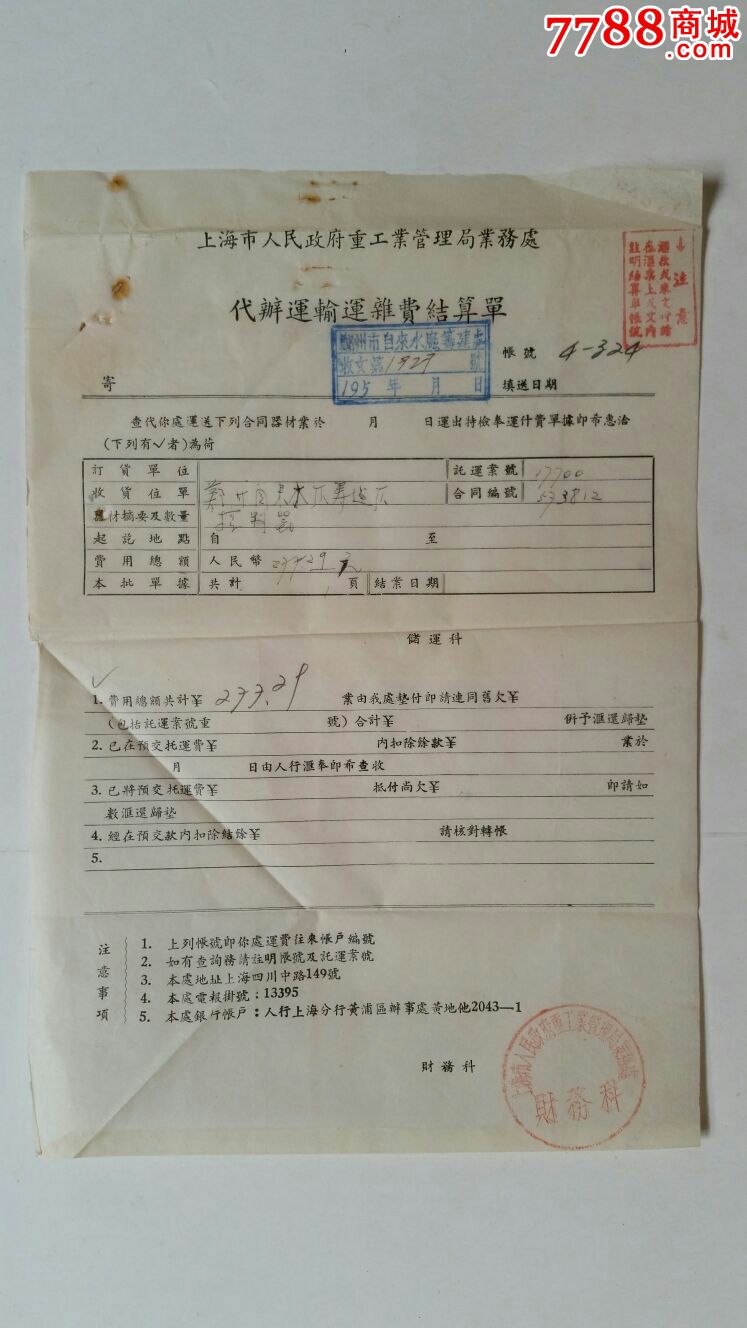 7788商城
.com
上海市人民政府重工業管理局業務處
注意
代辦運輸運雜費結算單
鄭州市自來水廠籌建處
收文第1929號
195 年 月 日
帳號 4-324
寄
填送日期
查代你處運送下列合同器材業於 月 日運出持檢奉運什費單據即布惠洽
(下列有√者)為荷
訂貨單位 託運業號 17700
收貨位單 合同編號 533812
器材摘要及數量
起訖地點 自 至
費用總額 人民幣 元
本批單據 共計 1 頁 結業日期
儲運科
√
1. 費用總額共計¥ 233.29 業由我處墊付即請連同舊欠¥
(包括託運業號重 號)合計¥ 併予滙還歸墊
2. 已在預交托運費¥ 內扣除餘款¥ 業於
月 日由人行滙奉即布查收
3. 已將預交托運費¥ 抵付尚欠¥ 即請如
數滙還歸墊
4. 經在預交款內扣除結餘¥ 請核對轉帳
5.
注意事項
1. 上列帳號即你處運費往來帳戶編號
2. 如有查詢務請註明賬號及託運業號
3. 本處地址上海四川中路149號
4. 本處電報掛號:13395
5. 本處銀行帳戶:人行上海分行黃浦區辦事處黃地他2043—1
財務科
上海市人民政府重工業管理局業務處
財務科